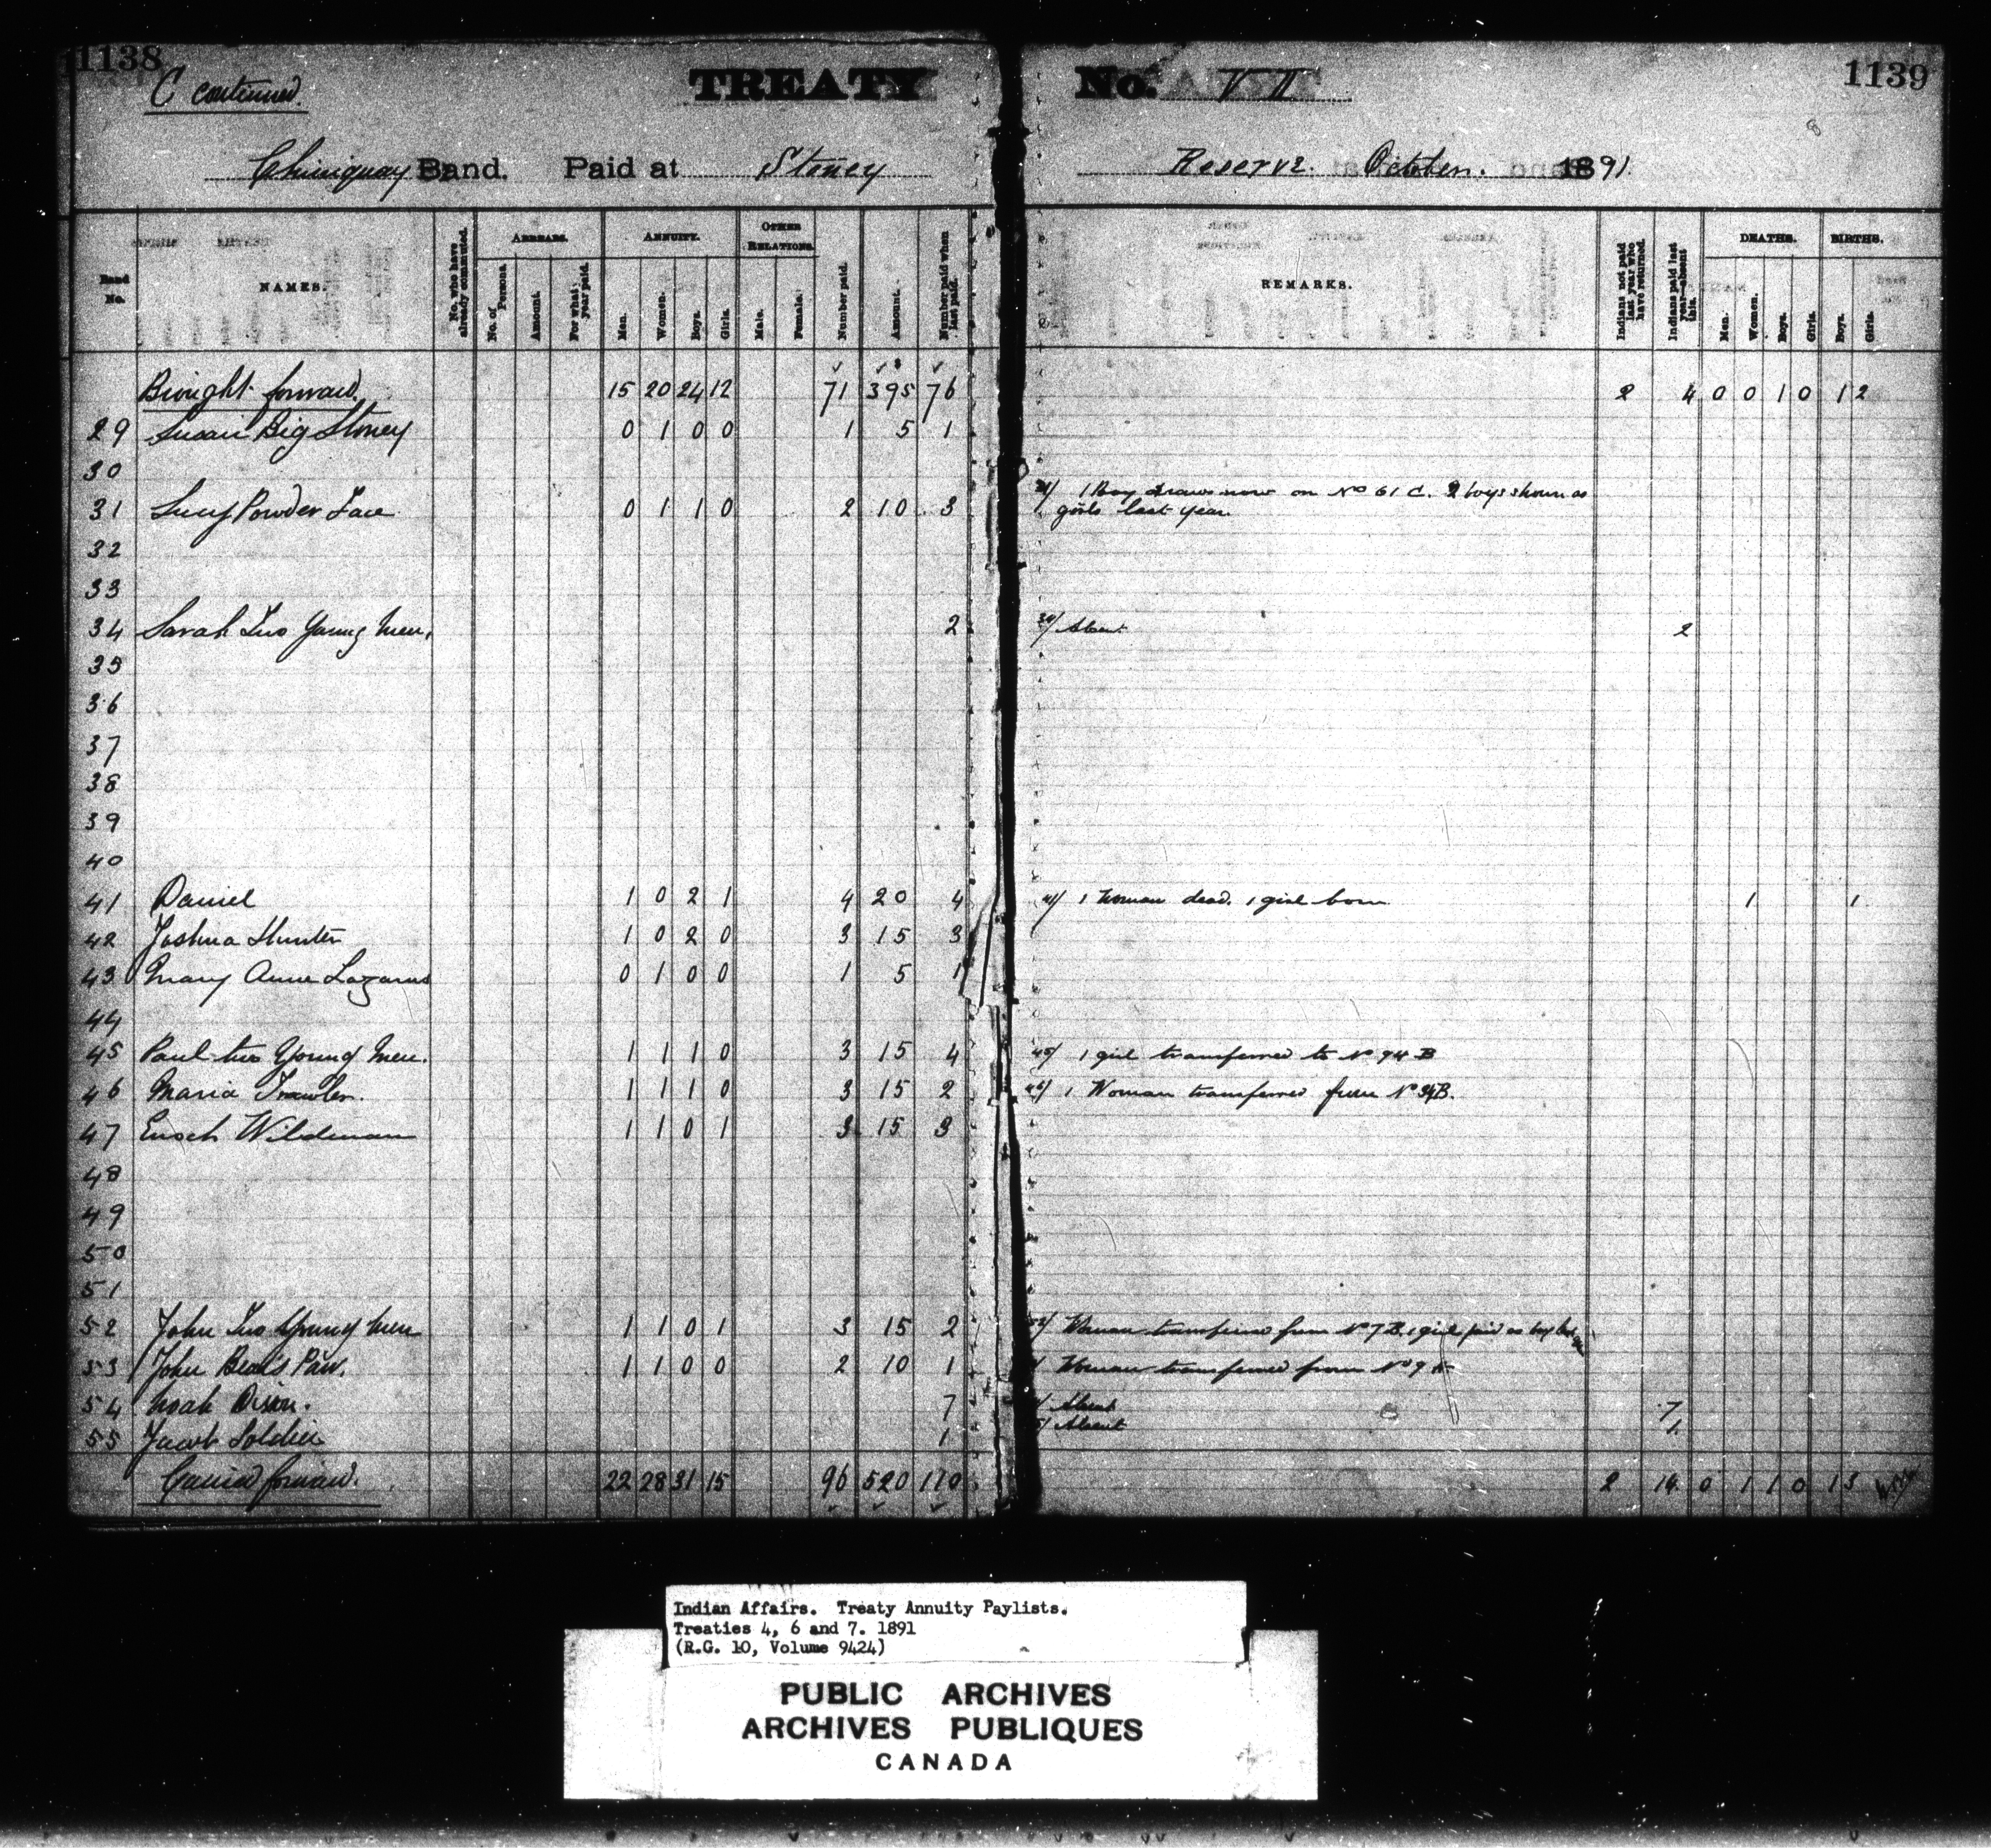 1138
C continued.
TREATY No. VII
1139
Chiniquay Band. Paid at Stoney Reserve. October. 1891.
Band No.
NAMES.
No. who have already commuted.
ARREARS.
No. of Persons.
Amount.
For what year paid.
ANNUITY.
Men.
Women.
Boys.
Girls.
OTHER RELATIONS.
Male.
Female.
Number paid.
Amount.
Number paid when last paid.
REMARKS.
Indians not paid last year who have returned.
Indians paid last year—absent this.
DEATHS.
Men.
Women.
Boys.
Girls.
BIRTHS.
Boys.
Girls.
Brought forward. 15 20 24 12 71 395 76 2 4 0 0 1 0 1 2
29 Susan Big Stoney 0 1 0 0 1 5 1
30
31 Lucy Powder Face 0 1 1 0 2 10 3 31/ 1 Boy draws now on No 61 C. 2 boys shown as
girls last year
32
33
34 Sarah Two Young Men. 2 34/ Absent. 2
35
36
37
38
39
40
41 Daniel 1 0 2 1 4 20 4 41/ 1 Woman dead. 1 girl born 1 1
42 Joshua Hunter 1 0 2 0 3 15 3
43 Mary Anne Lazarus 0 1 0 0 1 5 1
44
45 Paul two Young Men. 1 1 1 0 3 15 4 45/ 1 girl transferred to No 94 B
46 Maria Trawler. 1 1 1 0 3 15 2 46/ 1 Woman transferred from No 34B.
47 Enoch Wildman 1 1 0 1 3 15 3
48
49
50
51
52 John Two Young Men 1 1 0 1 3 15 2 52/ Woman transferred from No 7 B. 1 girl paid as boy last
53 John Bear's Paw. 1 1 0 0 2 10 1 Woman transferred from No 9
54 Noah Dixon. 7 Absent 7
55 Jacob Soldier 1 Absent 1
Carried forward. 22 28 31 15 96 520 110 2 14 0 1 1 0 1 3
Indian Affairs. Treaty Annuity Paylists.
Treaties 4, 6 and 7. 1891
(R.G. 10, Volume 9424)
PUBLIC ARCHIVES
ARCHIVES PUBLIQUES
CANADA